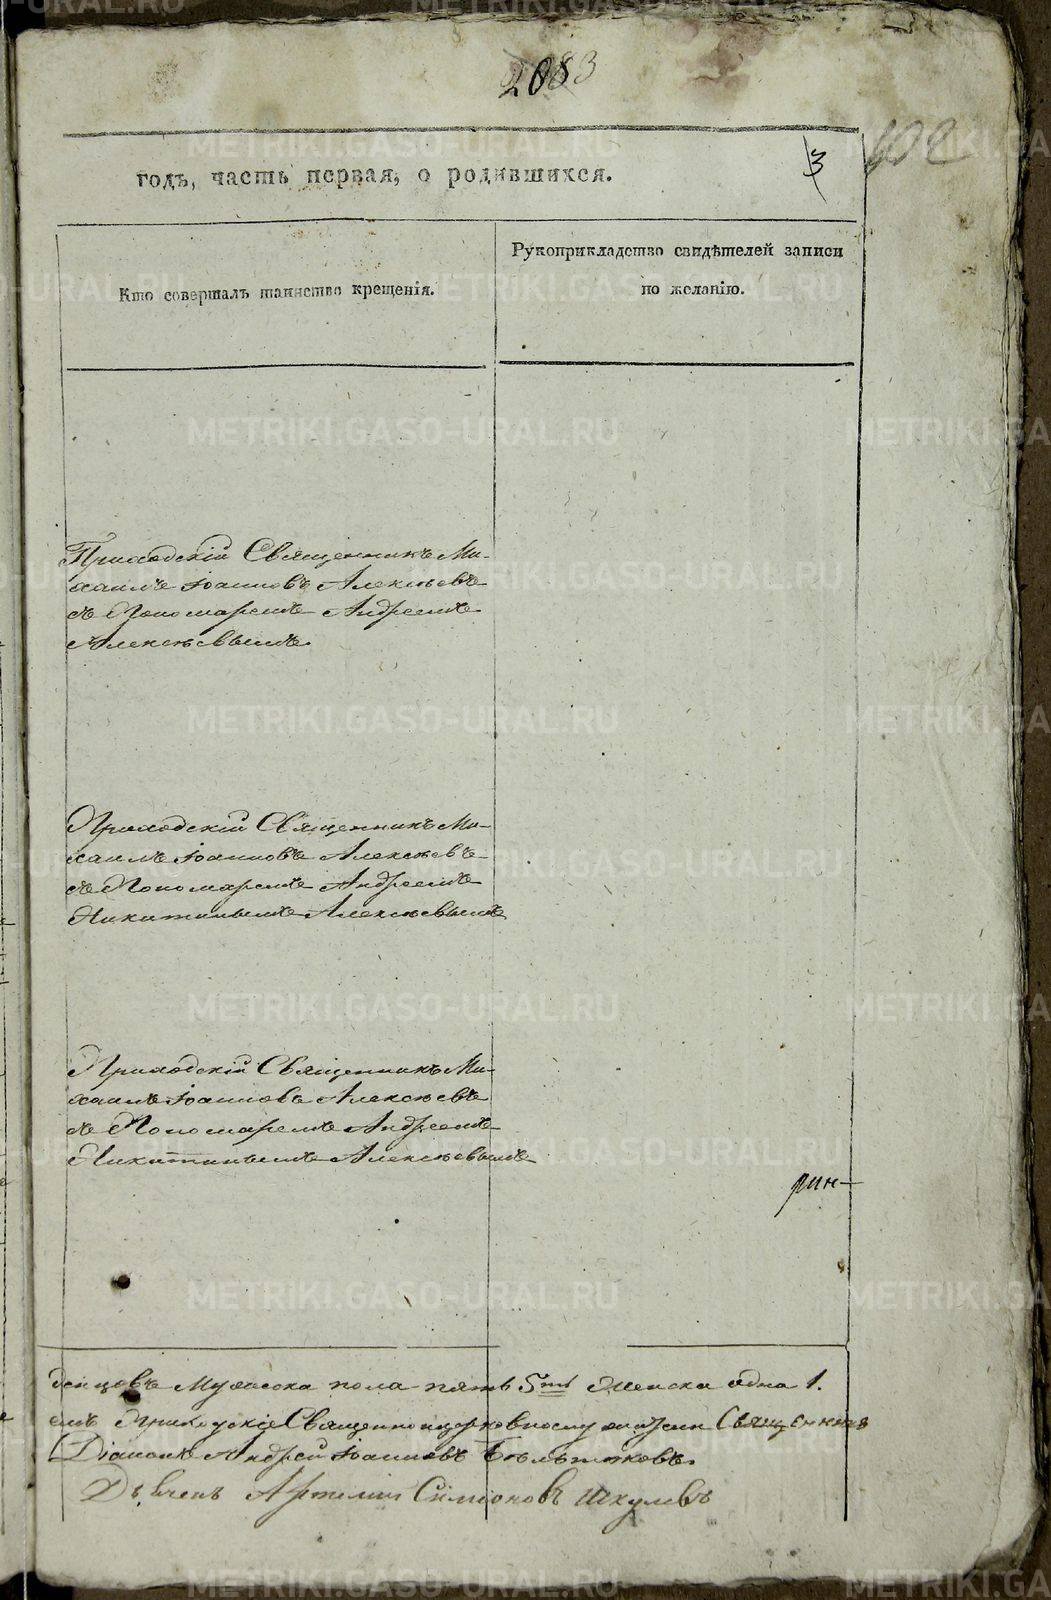 2083
3
402
годъ, часть первая, о родившихся.
Кто совершалъ таинство крещенія.
Рукоприкладство свидѣтелей записи
по желанію.
Приходскій Священникъ Ми-
хаилъ Іоанновъ Алексѣевъ
съ Пономаремъ Андреемъ
Алексѣевымъ.
Приходскій Священникъ Ми-
хаилъ Іоанновъ Алексѣевъ
съ Пономаремъ Андреемъ
Никитинымъ Алексѣевымъ
Приходскій Священникъ Ми-
хаилъ Іоанновъ Алексѣевъ
съ Пономаремъ Андреемъ
Никитинымъ Алексѣевымъ
рин-
денцовъ Мужеска пола пять 5ть Женска одна 1.
Приходскіе Священноцерковнослужители Священникъ
Діаконъ Андрей Іоанновъ
Дьячекъ Симіоновъ Шкулевъ
METRIKI.GASO-URAL.RU